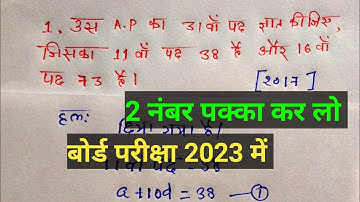 1. उस A.P का 31वाँ पद ज्ञात कीजिए,
जिसका 11वाँ पद 38 है और 16वाँ
पद 73 है।
[2017]
हल:
2 नंबर पक्का कर लो
बोर्ड परीक्षा 2023 में
a+10d = 38 —①